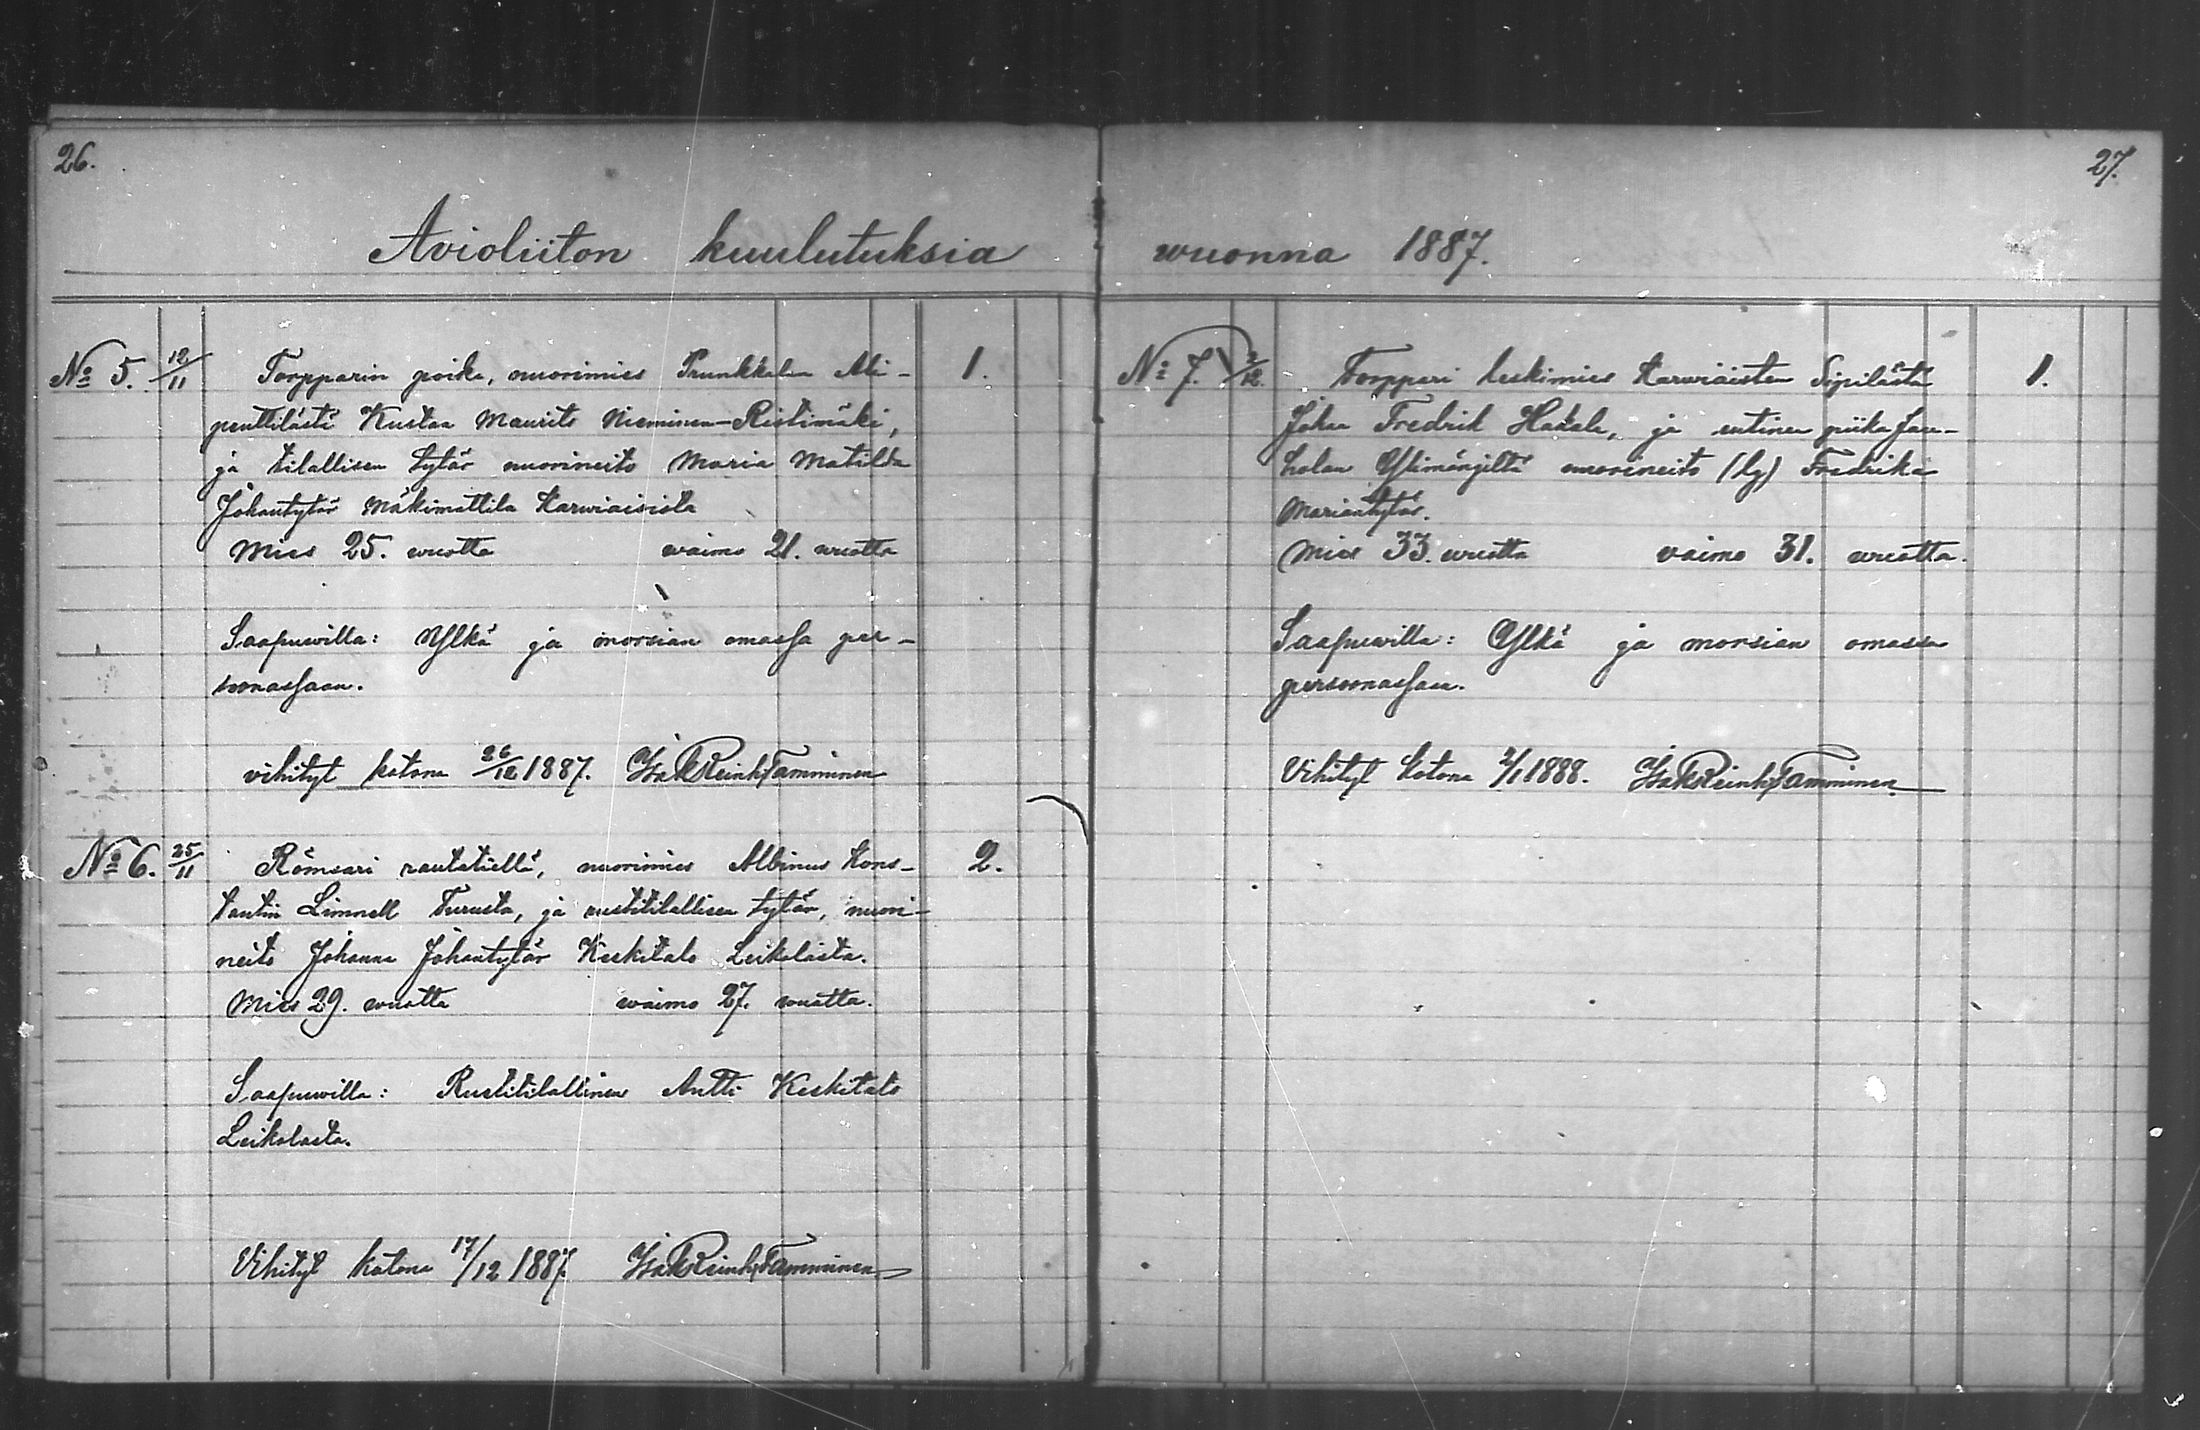 26.
Avioliiton kuulutuksia
No 5. 12/11 Torpparin poika, nuorimies Prunkkalan Ali- 1.
penttilästä Kustaa Maurits Nieminen-Ristimäki,
ja tilallisen tytär nuorineito Maria Matilda
Johantytär Mäkimattila Karwiaisista
Mies 25. wuotta waimo 21. wuotta
Saapuwilla: Ylkä ja morsian omassa per-
soonassaan.
vihityt kotona 26/12 1887. Isak Reinh Tamminen
No 6. 25/11 Römsari rautatiellä, nuorimies Albinus Kons- 2.
tantin Limnell Turusta, ja rustitilallisen tytär, nuori-
neito Johanna Johantytär Keskitalo Leikolasta.
Mies 29. wuotta waimo 27. wuotta.
Saapuwilla: Rustitilallinen Antti Keskitalo
Leikolasta.
Vihityt kotona 17/12 1887. Isak Reinh Tamminen
27.
wuonna 1887.
No 7. 2/12. Torppari leskimies Karwiaisten Sipilästä 1.
Johan Fredrik Hakala, ja entinen piika
Ylimänjiltä nuorineito (lg) Fredrika
Mariantytär.
Mies 33. wuotta vaimo 31. wuotta.
Saapuwilla: Ylkä ja morsian omassa
persoonassaan.
Vihityt kotona 2/1 1888. Isak Reinh Tamminen